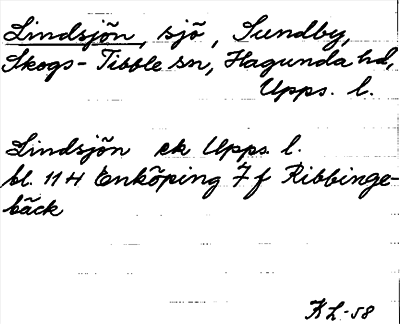 Lindsjön, sjö, Sundby,
Skogs-Tibble sn, Hagunda hd,
Upps. l.
Lindsjön ek Upps. l.
bl. 11 H Enköping 7 f Ribbinge-
bäck
KL-58